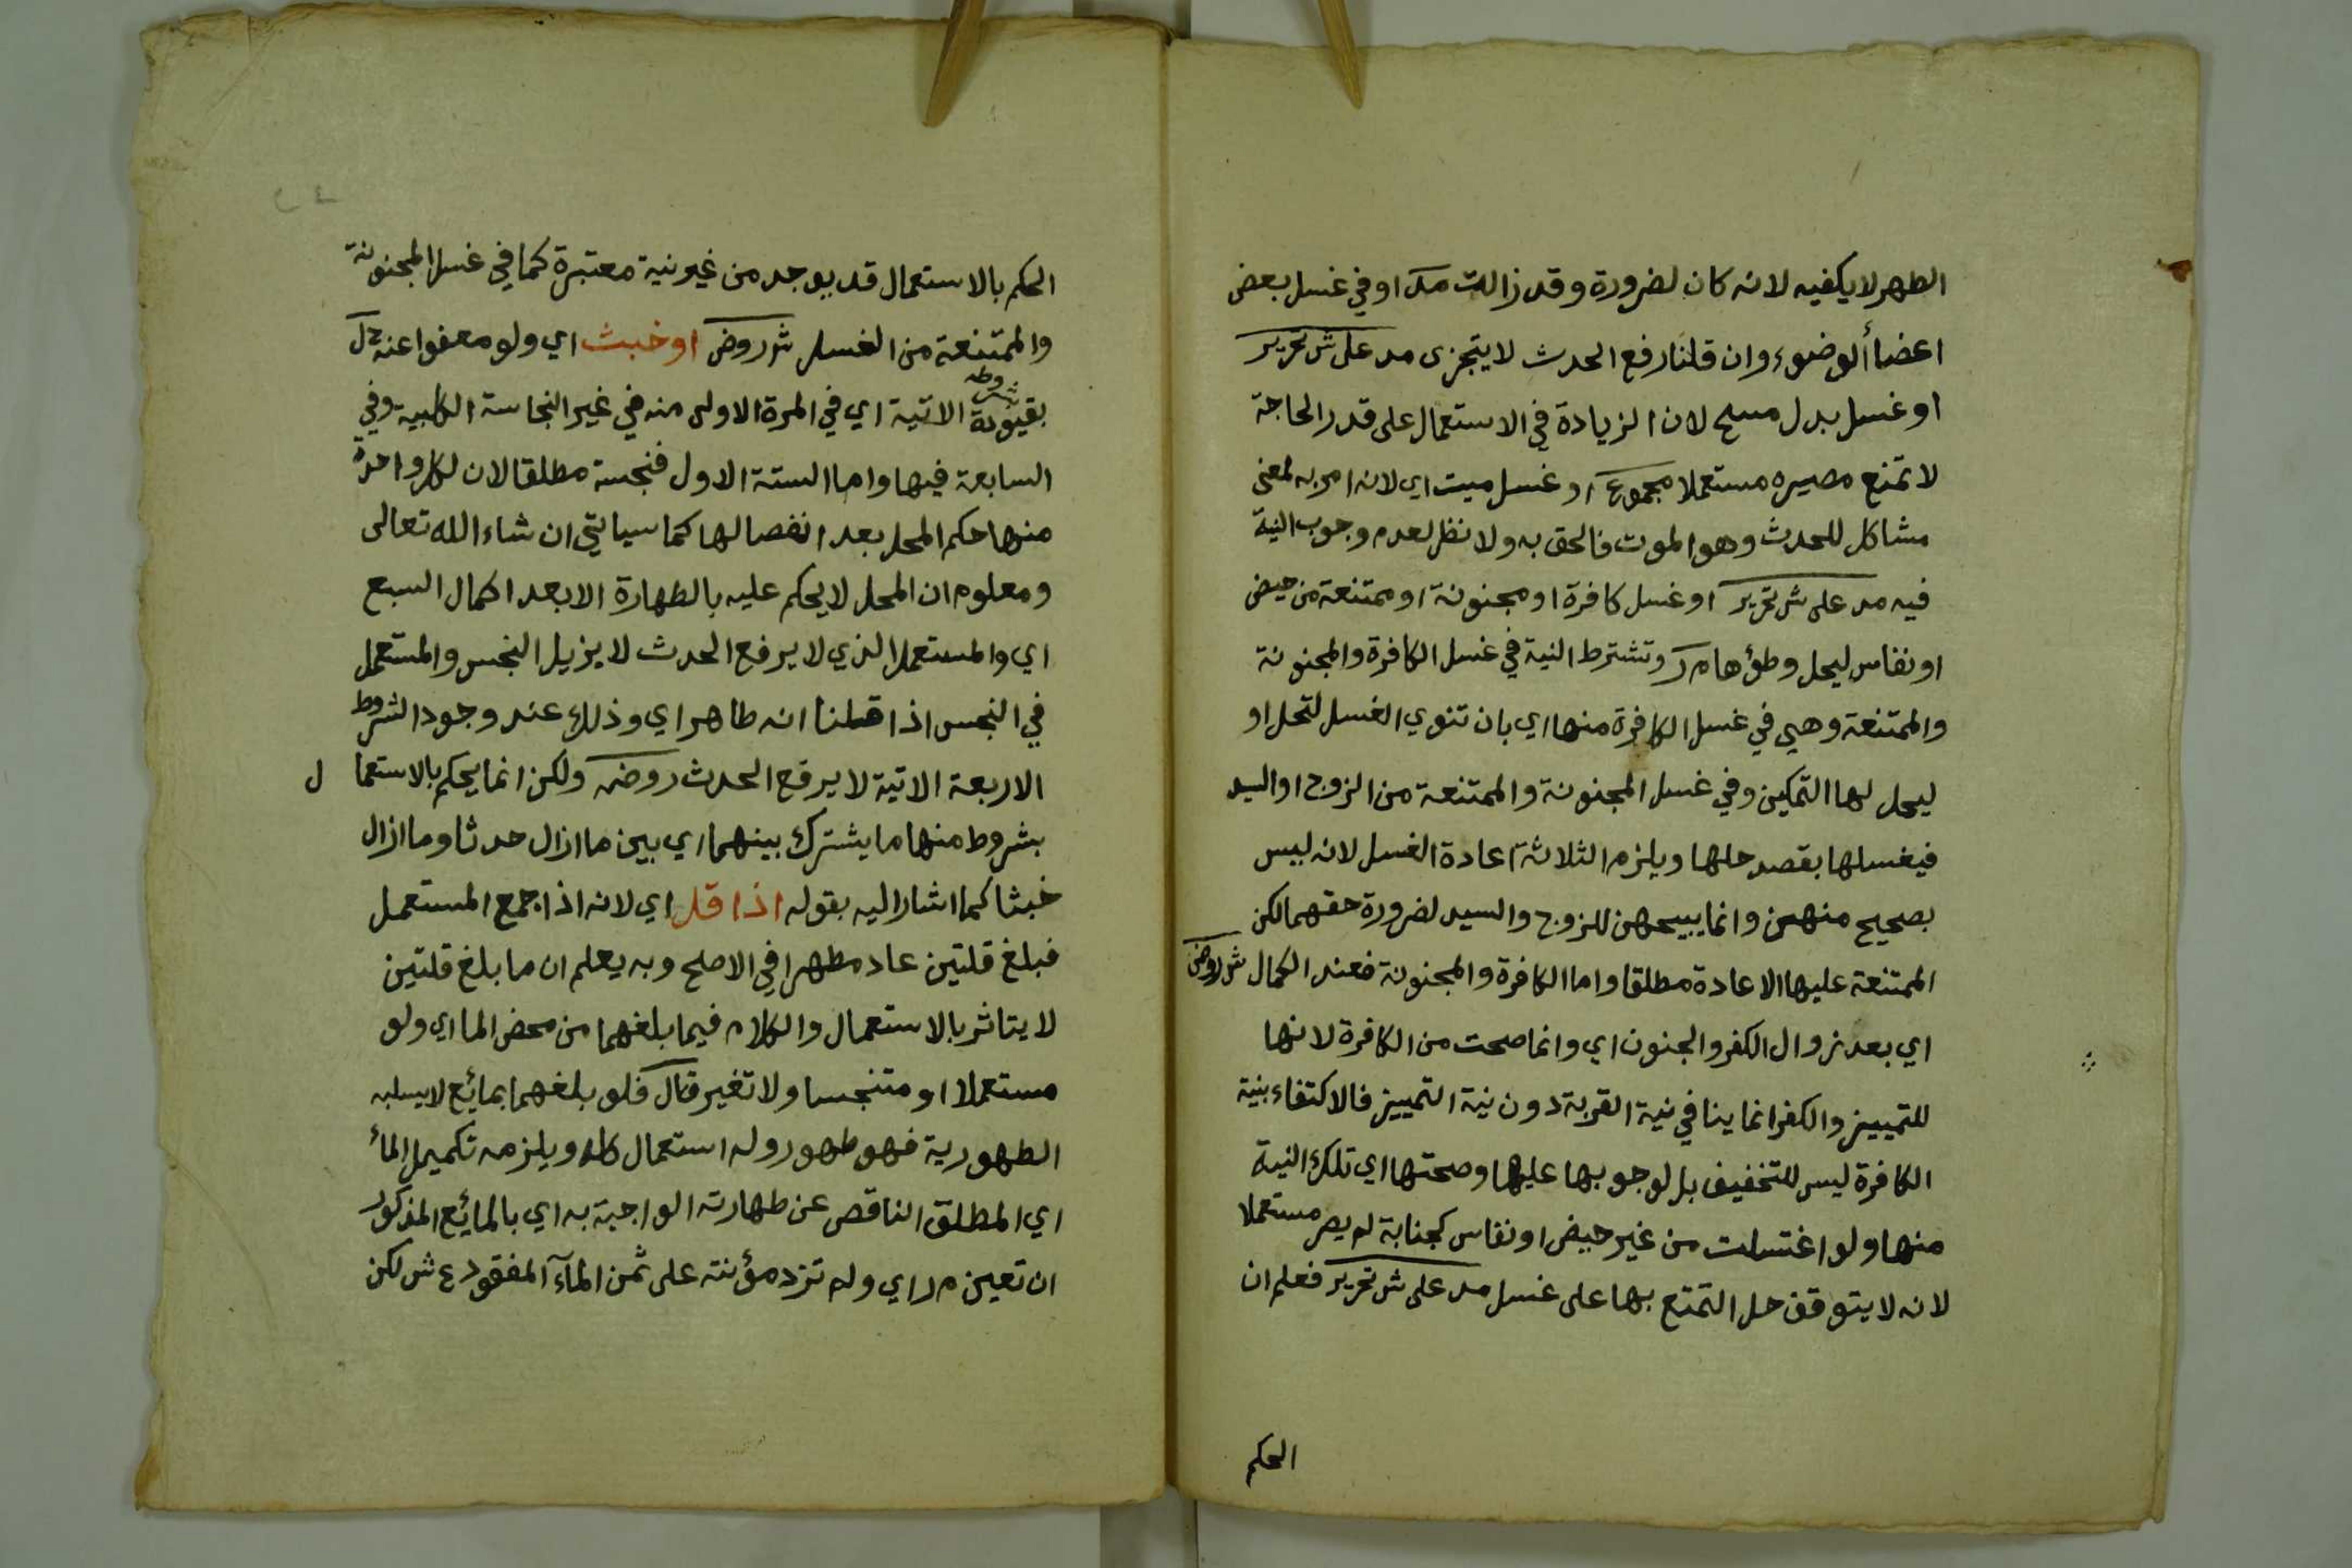 الطهر لا يكفيه لانه كان لضرورة وقد زالت مد او في غسل بعض
اعضا ألوضوء وان قلنا رفع الحدث لا يتجزى مد على ش تحرير
او غسل بدل مسح لان الزيادة في الاستعمال على قدر الحاجة
لا تمنع مصيره مستعملا مجموع او غسل ميت اي لانه امر به لمعنى
مشاكل للحدث وهو الموت فالحق به ولا نظر لعدم وجوب النية
فيه مد على ش تحرير او غسل كافرة او مجنونة او ممتنعة من حيض
او نفاس ليحل وطؤها م ر وتشترط النية في غسل الكافرة والمجنونة
والممتنعة وهي في غسل الكافرة منها اي بان تنوي الغسل لتحل او
ليحل لها التمكين وفي غسل المجنونة والممتنعة من الزوج او السيد
فيغسلها بقصد حلها ويلزم الثلاثة اعادة الغسل لانه ليس
بصحيح منهن وانما يبيحهن للزوج والسيد لضرورة حقهما لكن
الممتنعة عليها الاعادة مطلقا واما الكافرة والمجنونة فعند الكمال ش روض
اي بعد زوال الكفر والجنون اي وانما صحت من الكافرة لانها
للتمييز والكفر انما ينافي نية القربة دون نية التمييز فالاكتفاء بنية
الكافرة ليس للتخفيف بل لوجوبها عليها وصحتها اي تلك النية
منها ولو اغتسلت من غير حيض او نفاس كجنابة لم يصر مستعملا
لانه لا يتوقف حل التمتع بها على غسل مد على ش تحرير فعلم ان
الحكم
الحكم بالاستعمال قد يوجد من غير نية معتبرة كما في غسل المجنونة
والممتنعة من الغسل ش روض او خبث اي ولو معفوا عنه
شروطه
بقية الاتية اي في المرة الاولى منه في غير النجاسة الكلبية وفي
السابعة فيها واما الستة الاول فنجسة مطلقا لان لكل واحدة
منها حكم المحل بعد انفصالها كما سياتي ان شاء الله تعالى
ومعلوم ان المحل لا يحكم عليه بالطهارة الا بعد اكمال السبع
اي والمستعمل الذي لا يرفع الحدث لا يزيل النجس والمستعمل
في النجس اذا قلنا انه طاهر اي وذلك عند وجود الشروط
الاربعة الاتية لا يرفع الحدث روض ولكن انما يحكم بالاستعما ل
بشروط منها ما يشترك بينهما اي بين ما ازال حدثا وما ازال
خبثا كما اشار اليه بقوله اذا قل اي لانه اذا جمع المستعمل
فبلغ قلتين عاد مطهرا في الاصح وبه يعلم ان ما بلغ قلتين
لا يتاثر بالاستعمال والكلام فيما بلغهما من محض الما اي ولو
مستعملا او متنجسا ولا تغير قال فلو بلغهما بمائع لا يسلبه
الطهورية فهو طهور وله استعمال كله ويلزمه تكميل المأ
اي المطلق الناقص عن طهارته الواجبة به اي بالمائع المذكور
ان تعين م ر اي ولم تزد مؤنته على ثمن المآء المفقود ع ش لكن